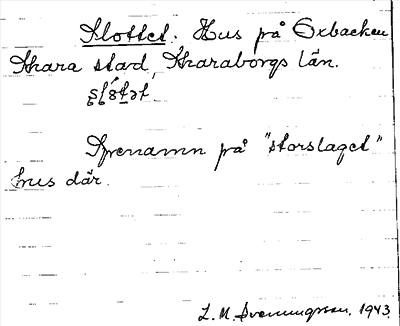 Slottet. Hus på Oxbacken
Skara stad, Skaraborgs län.
Örenamn på "storslaget"
hus där.
L. M. Svenungsson, 1943